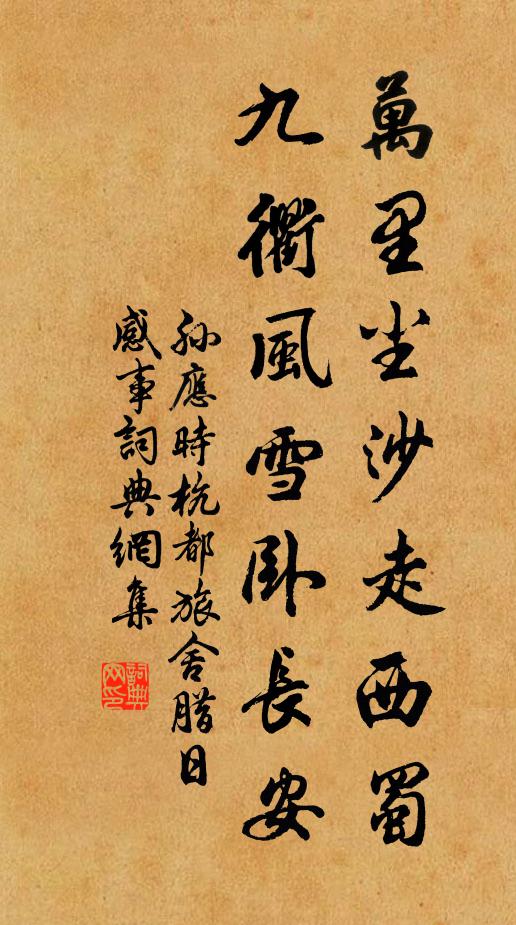 萬里尘沙走西蜀
九衢風雪卧長安
孙應時杭都旅舍腊日
感事詞典網集
詞典网印